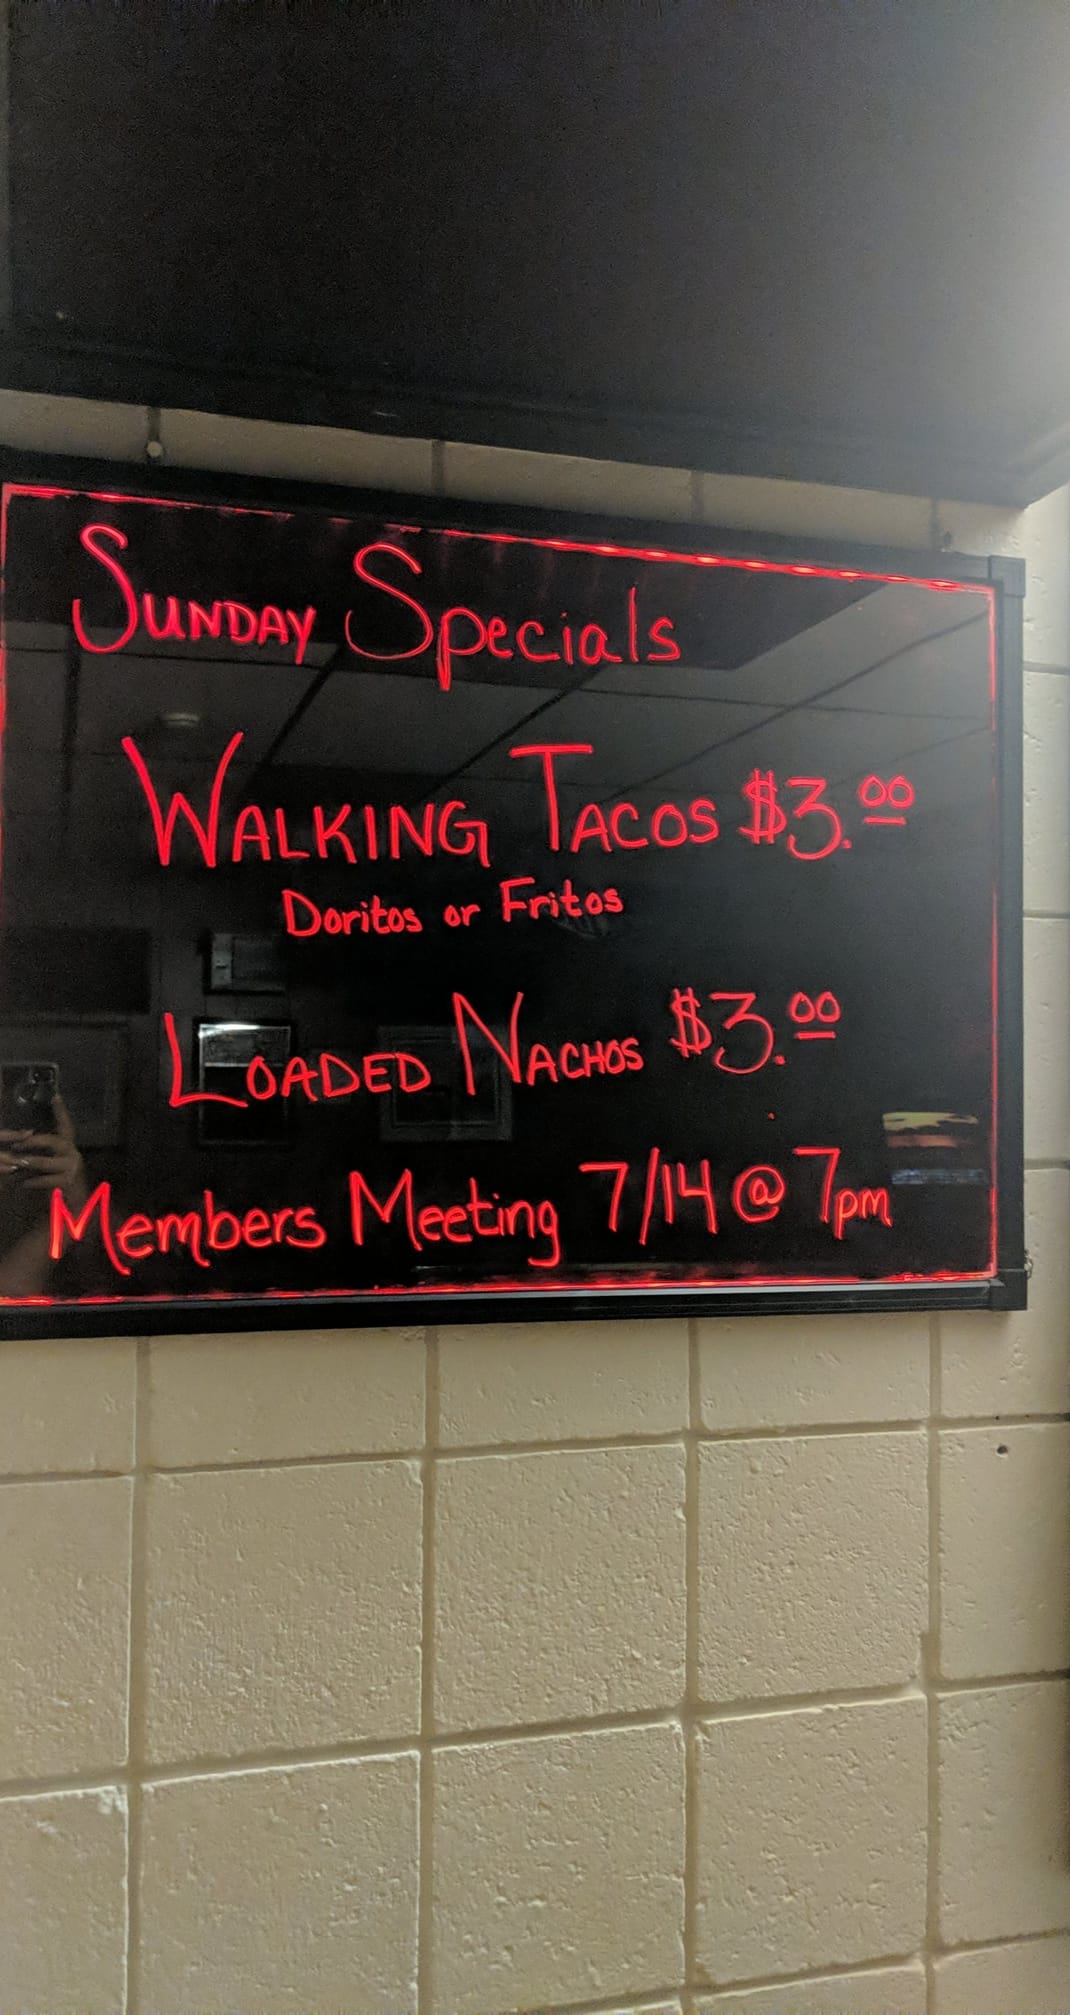 Sunday Specials
Walking Tacos $3.00
Doritos or Fritos
Loaded Nachos $3.00
Members Meeting 7/14 @ 7pm